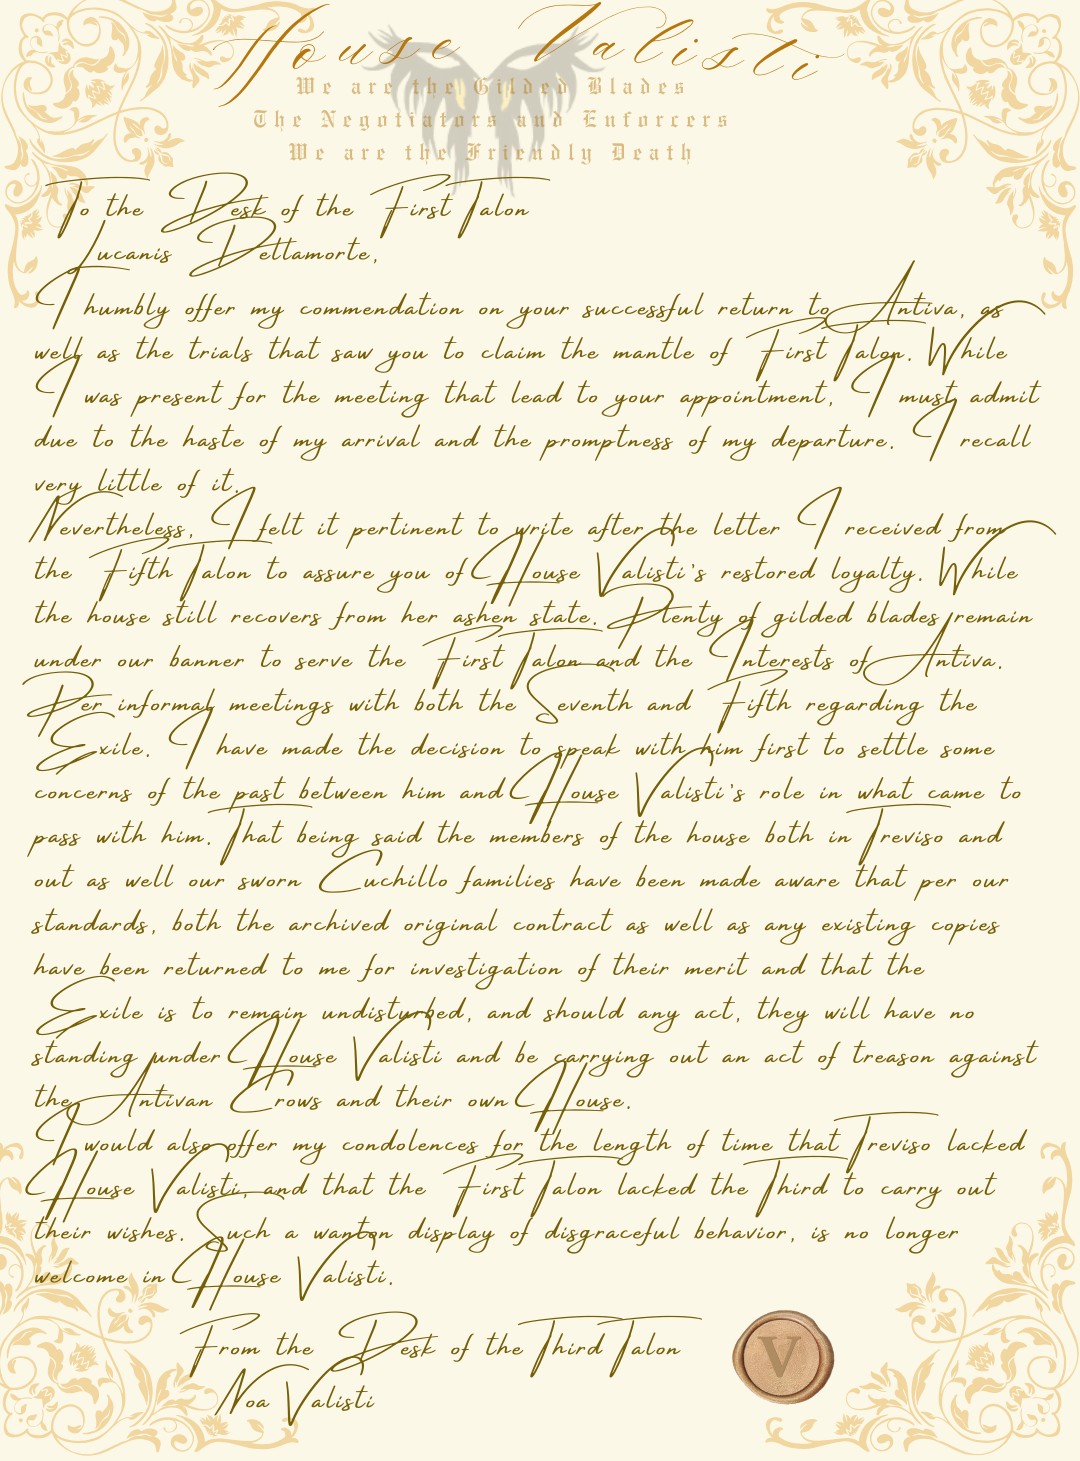 House Valisti
We are the Gilded Blades
The Negotiators and Enforcers
We are the Friendly Death
To the Desk of the First Talon
Lucanis Dellamorte,
I humbly offer my commendation on your successful return to Antiva, as
well as the trials that saw you to claim the mantle of First Talon. While
I was present for the meeting that lead to your appointment, I must admit
due to the haste of my arrival and the promptness of my departure. I recall
very little of it.
Nevertheless, I felt it pertinent to write after the letter I received from
the Fifth Talon to assure you of House Valisti's restored loyalty. While
the house still recovers from her ashen state. Plenty of gilded blades remain
under our banner to serve the First Talon and the Interests of Antiva.
Per informal meetings with both the Seventh and Fifth regarding the
Exile. I have made the decision to speak with him first to settle some
concerns of the past between him and House Valisti's role in what came to
pass with him. That being said the members of the house both in Treviso and
out as well our sworn Cuchillo families have been made aware that per our
standards, both the archived original contract as well as any existing copies
have been returned to me for investigation of their merit and that the
Exile is to remain undisturbed, and should any act, they will have no
standing under House Valisti and be carrying out an act of treason against
the Antivan Crows and their own House.
I would also offer my condolences for the length of time that Treviso lacked
House Valisti, and that the First Talon lacked the Third to carry out
their wishes. Such a wanton display of disgraceful behavior, is no longer
welcome in House Valisti.
From the Desk of the Third Talon
Noa Valisti
V